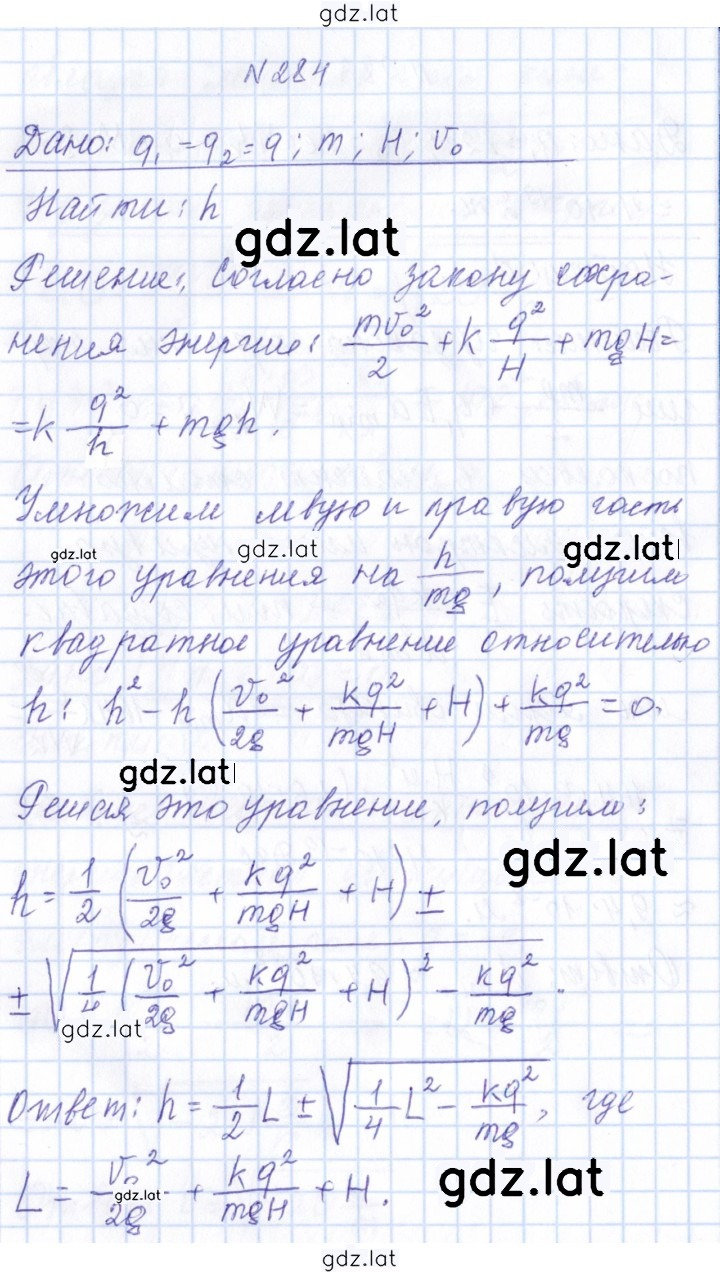 gdz.lat
N284
Дано: q₁ = q₂ = q ; m ; H ; v₀
Найти: h
gdz.lat
Решение: Согласно закону сохра-
нения энергии: mv₀²/2 + k q²/H + mgH =
= k q²/h + mgh.
Умножим левую и правую часть
gdz.lat gdz.lat gdz.lat
этого уравнения на h/mg, получим
квадратное уравнение относительно
h: h² - h (v₀²/2g + kq²/mgH + H) + kq²/mg = 0.
gdz.lat
Решая это уравнение, получим:
gdz.lat
h = 1/2 (v₀²/2g + kq²/mgH + H) ±
± √(1/4 (v₀²/2g + kq²/mgH + H)² - kq²/mg).
gdz.lat
Ответ: h = 1/2 L ± √(1/4 L² - kq²/mg), где
L = v₀²/2g + kq²/mgH + H.
gdz.lat gdz.lat
gdz.lat